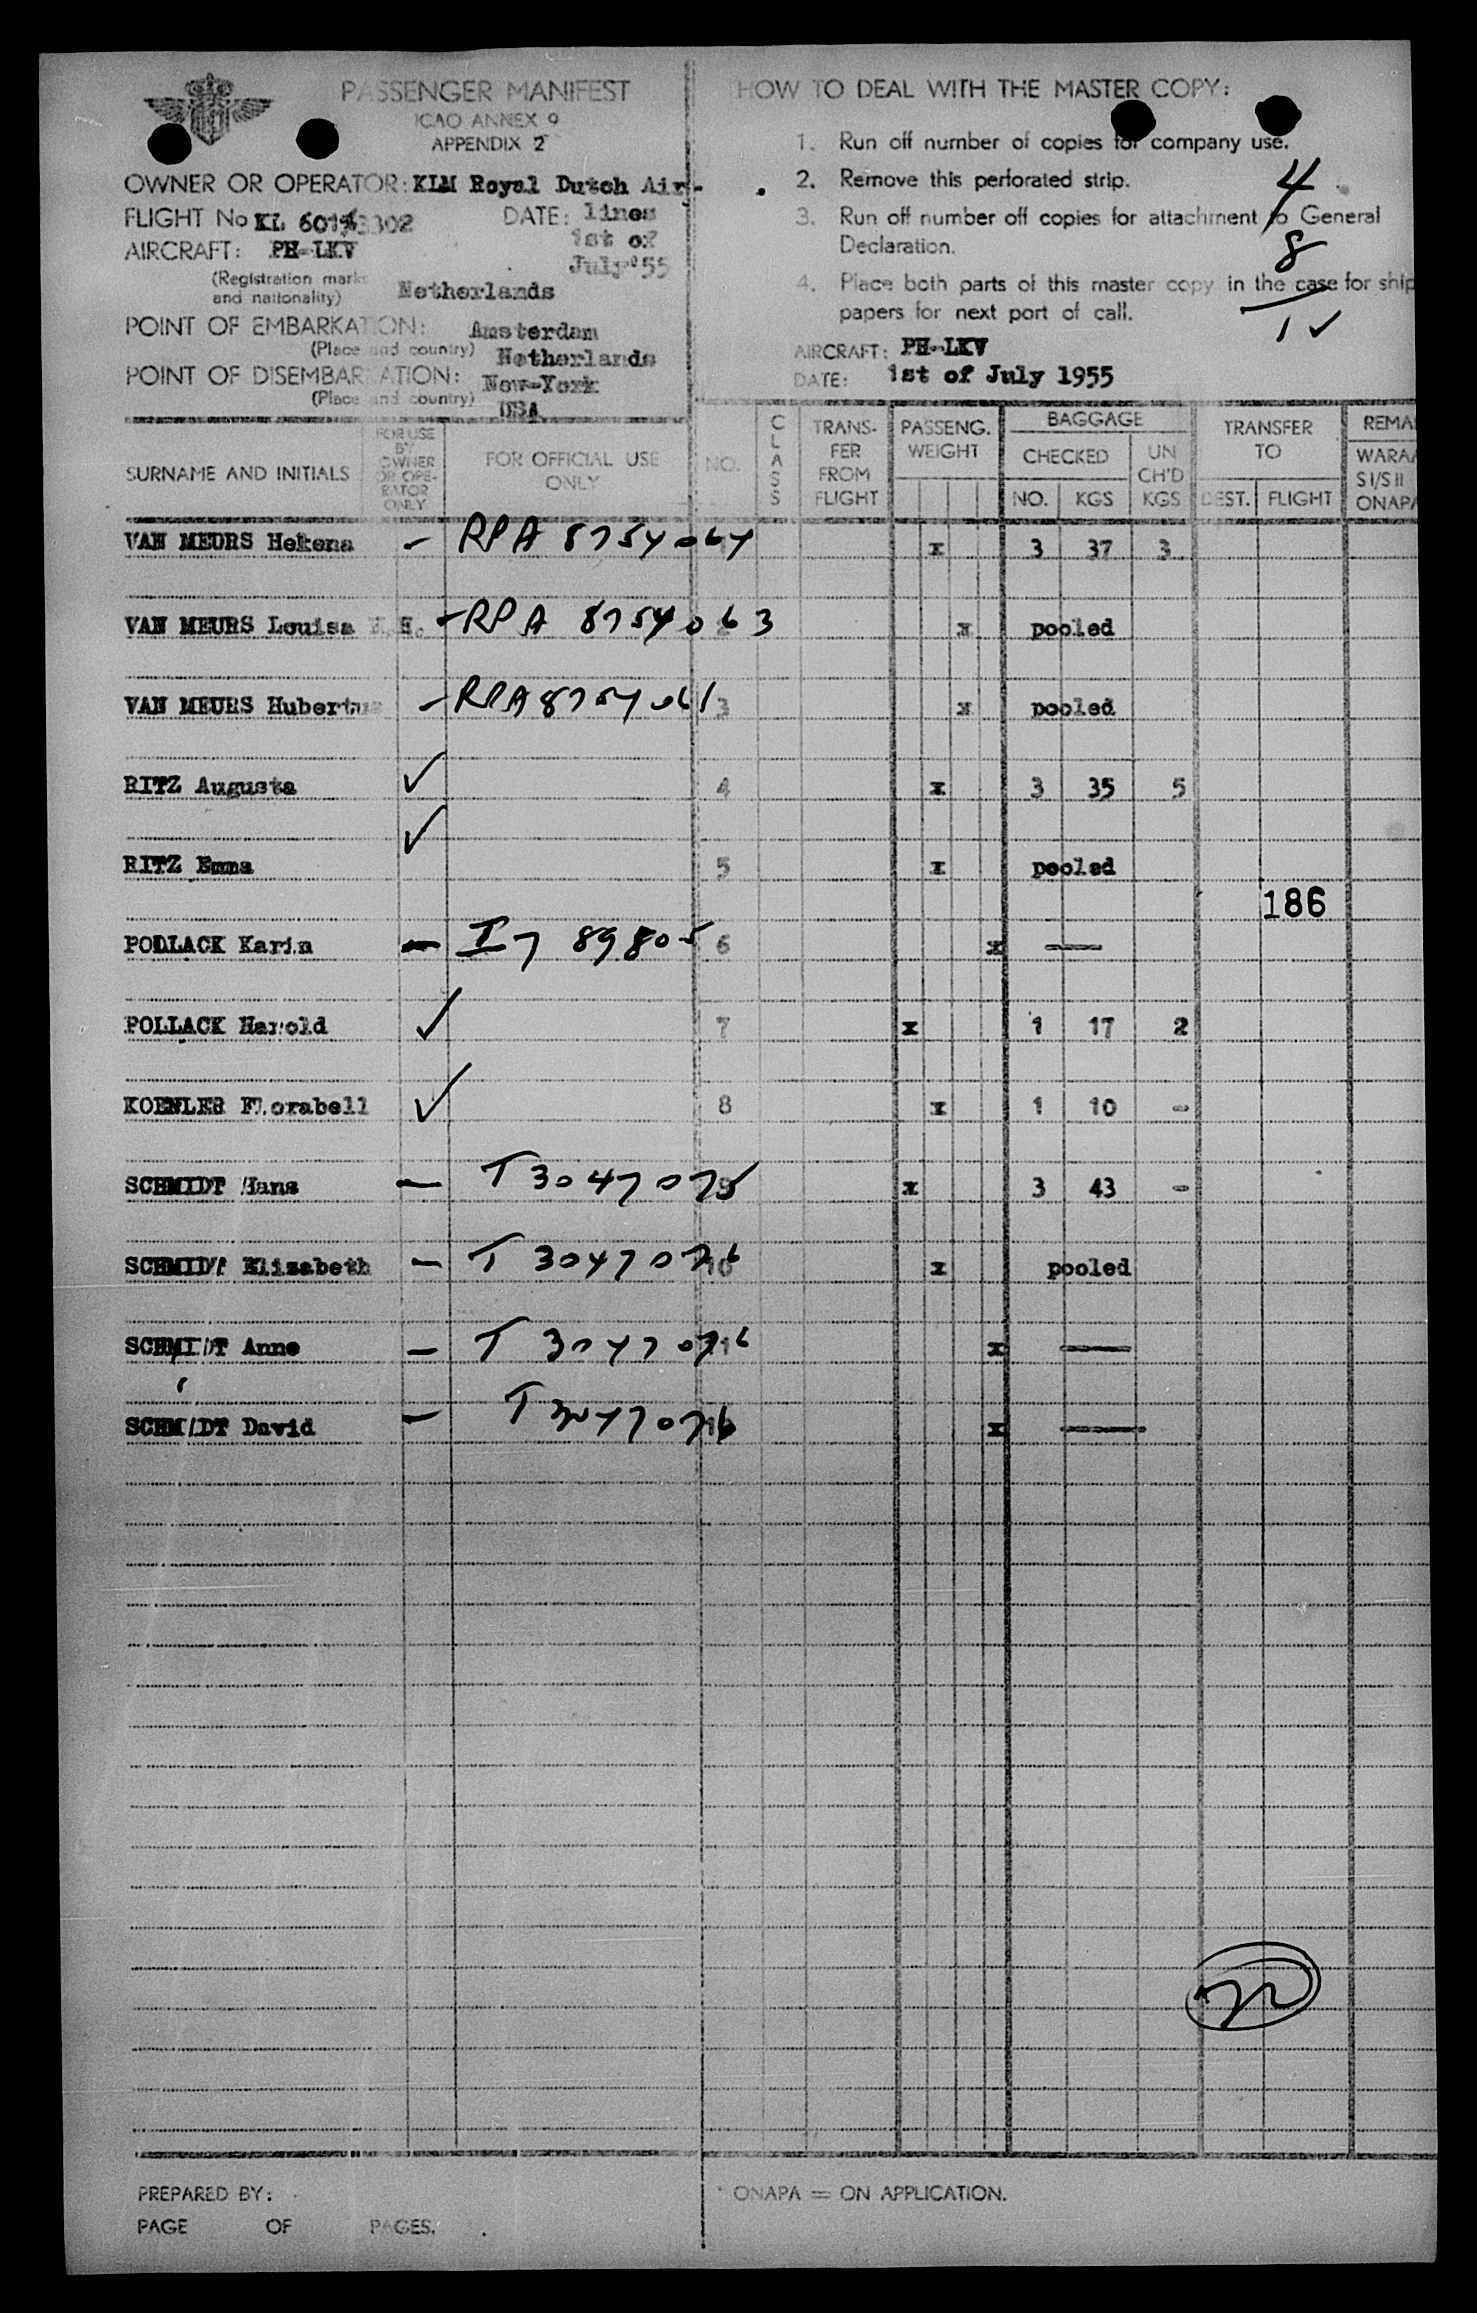 PASSENGER MANIFEST
ICAO ANNEX 9
APPENDIX 2
OWNER OR OPERATOR: KLM Royal Dutch Air-
FLIGHT No KL DATE: lines
1st of
July'55
AIRCRAFT: PH-LKV
(Registration marks
and nationality) Netherlands
POINT OF EMBARKATION: Amsterdam
(Place and country) Netherlands
POINT OF DISEMBARKATION: New-York
(Place and country) USA
HOW TO DEAL WITH THE MASTER COPY:
1. Run off number of copies for company use.
2. Remove this perforated strip.
3. Run off number off copies for attachment to General
Declaration.
4. Place both parts of this master copy in the case for ship
papers for next port of call.
4
8
12
AIRCRAFT: PH-LKV
DATE: 1st of July 1955
SURNAME AND INITIALS
FOR USE
BY
OWNER
OR OPE-
RATOR
ONLY
FOR OFFICIAL USE
ONLY
NO.
CLASS
TRANS-
FER
FROM
FLIGHT
PASSENG.
WEIGHT
BAGGAGE
CHECKED
NO. KGS
UN
CH'D
KGS
TRANSFER
TO
DEST. FLIGHT
REMA
WARA
SI/SII
ONAPA
VAN MEURS Hekena - RPA 8754064 x 3 37 3
VAN MEURS Louisa - RPA 8754063 x pooled
VAN MEURS Hubertus - RPA 8754061 3 x pooled
RITZ Augusta ✓ 4 x 3 35 5
RITZ Emma ✓ 5 x pooled
186
PODLACK Karin - I7 89805 6 x —
POLLACK Harold ✓ 7 x 1 17 2
KOEHLER Florabell ✓ 8 x 1 10 -
SCHMIDT Hans - T3047075 9 x 3 43 -
SCHMIDT Elizabeth - T 3047076 10 x pooled
SCHMIDT Anne - T 3047076 11 x —
SCHMIDT David - T3047076 12 x —
PREPARED BY:
PAGE OF PAGES.
ONAPA = ON APPLICATION.